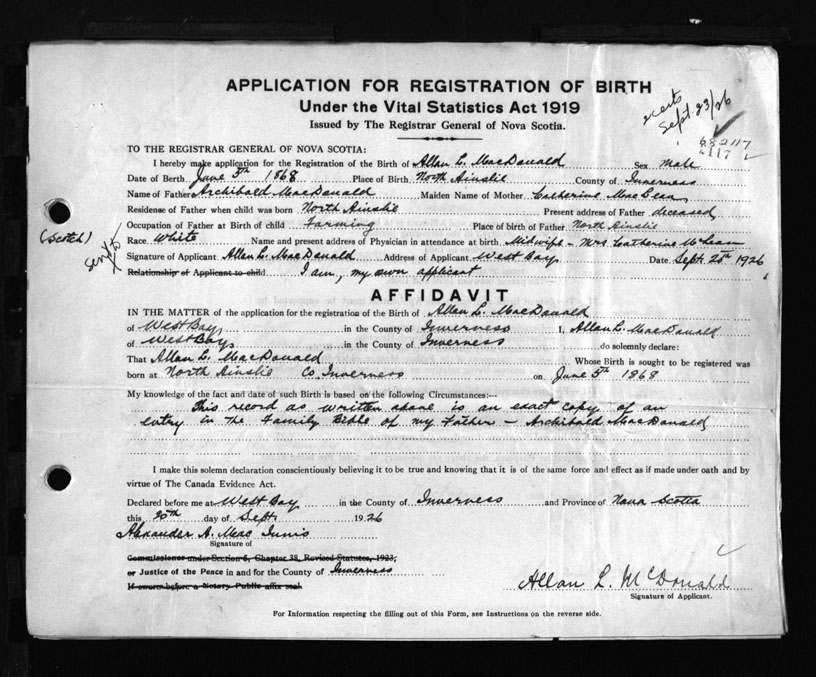 APPLICATION FOR REGISTRATION OF BIRTH
Under the Vital Statistics Act 1919
Issued by The Registrar General of Nova Scotia.
Sept. 23/26
682117
117
TO THE REGISTRAR GENERAL OF NOVA SCOTIA:
I hereby make application for the Registration of the Birth of Allan L. MacDonald Sex Male
Date of Birth June 5th 1868 Place of Birth North Ainslie County of Inverness
Name of Father Archibald MacDonald Maiden Name of Mother Catherine MacLean
Residense of Father when child was born North Ainslie Present address of Father deceased
Occupation of Father at Birth of child Farming Place of birth of Father North Ainslie
(Scotch) Race White Name and present address of Physician in attendance at birth Midwife - Mrs Catherine McLean
Signature of Applicant Allan L. MacDonald Address of Applicant West Bay Date Sept. 20th 1926
Relationship of Applicant to child I am, my own applicant
AFFIDAVIT
IN THE MATTER of the application for the registration of the Birth of Allan L. MacDonald
of West Bay in the County of Inverness I, Allan L. MacDonald
of West Bay in the County of Inverness do solemnly declare:
That Allan L. MacDonald Whose Birth is sought to be registered was
born at North Ainslie Co. Inverness on June 5th 1868
My knowledge of the fact and date of such Birth is based on the following Circumstances:--
This record as written above is an exact copy of an
entry in the Family Bible of my Father - Archibald MacDonald
I make this solemn declaration conscientiously believing it to be true and knowing that it is of the same force and effect as if made under oath and by
virtue of The Canada Evidence Act.
Declared before me at West Bay in the County of Inverness and Province of Nova Scotia
this 20th day of Sept. 1926
Alexander A. MacInnis
Signature of
Commissioner under Section 6, Chapter 38, Revised Statutes, 1923,
or Justice of the Peace in and for the County of Inverness
If sworn before a Notary Public affix seal
Allan L. McDonald
Signature of Applicant.
For Information respecting the filling out of this Form, see Instructions on the reverse side.